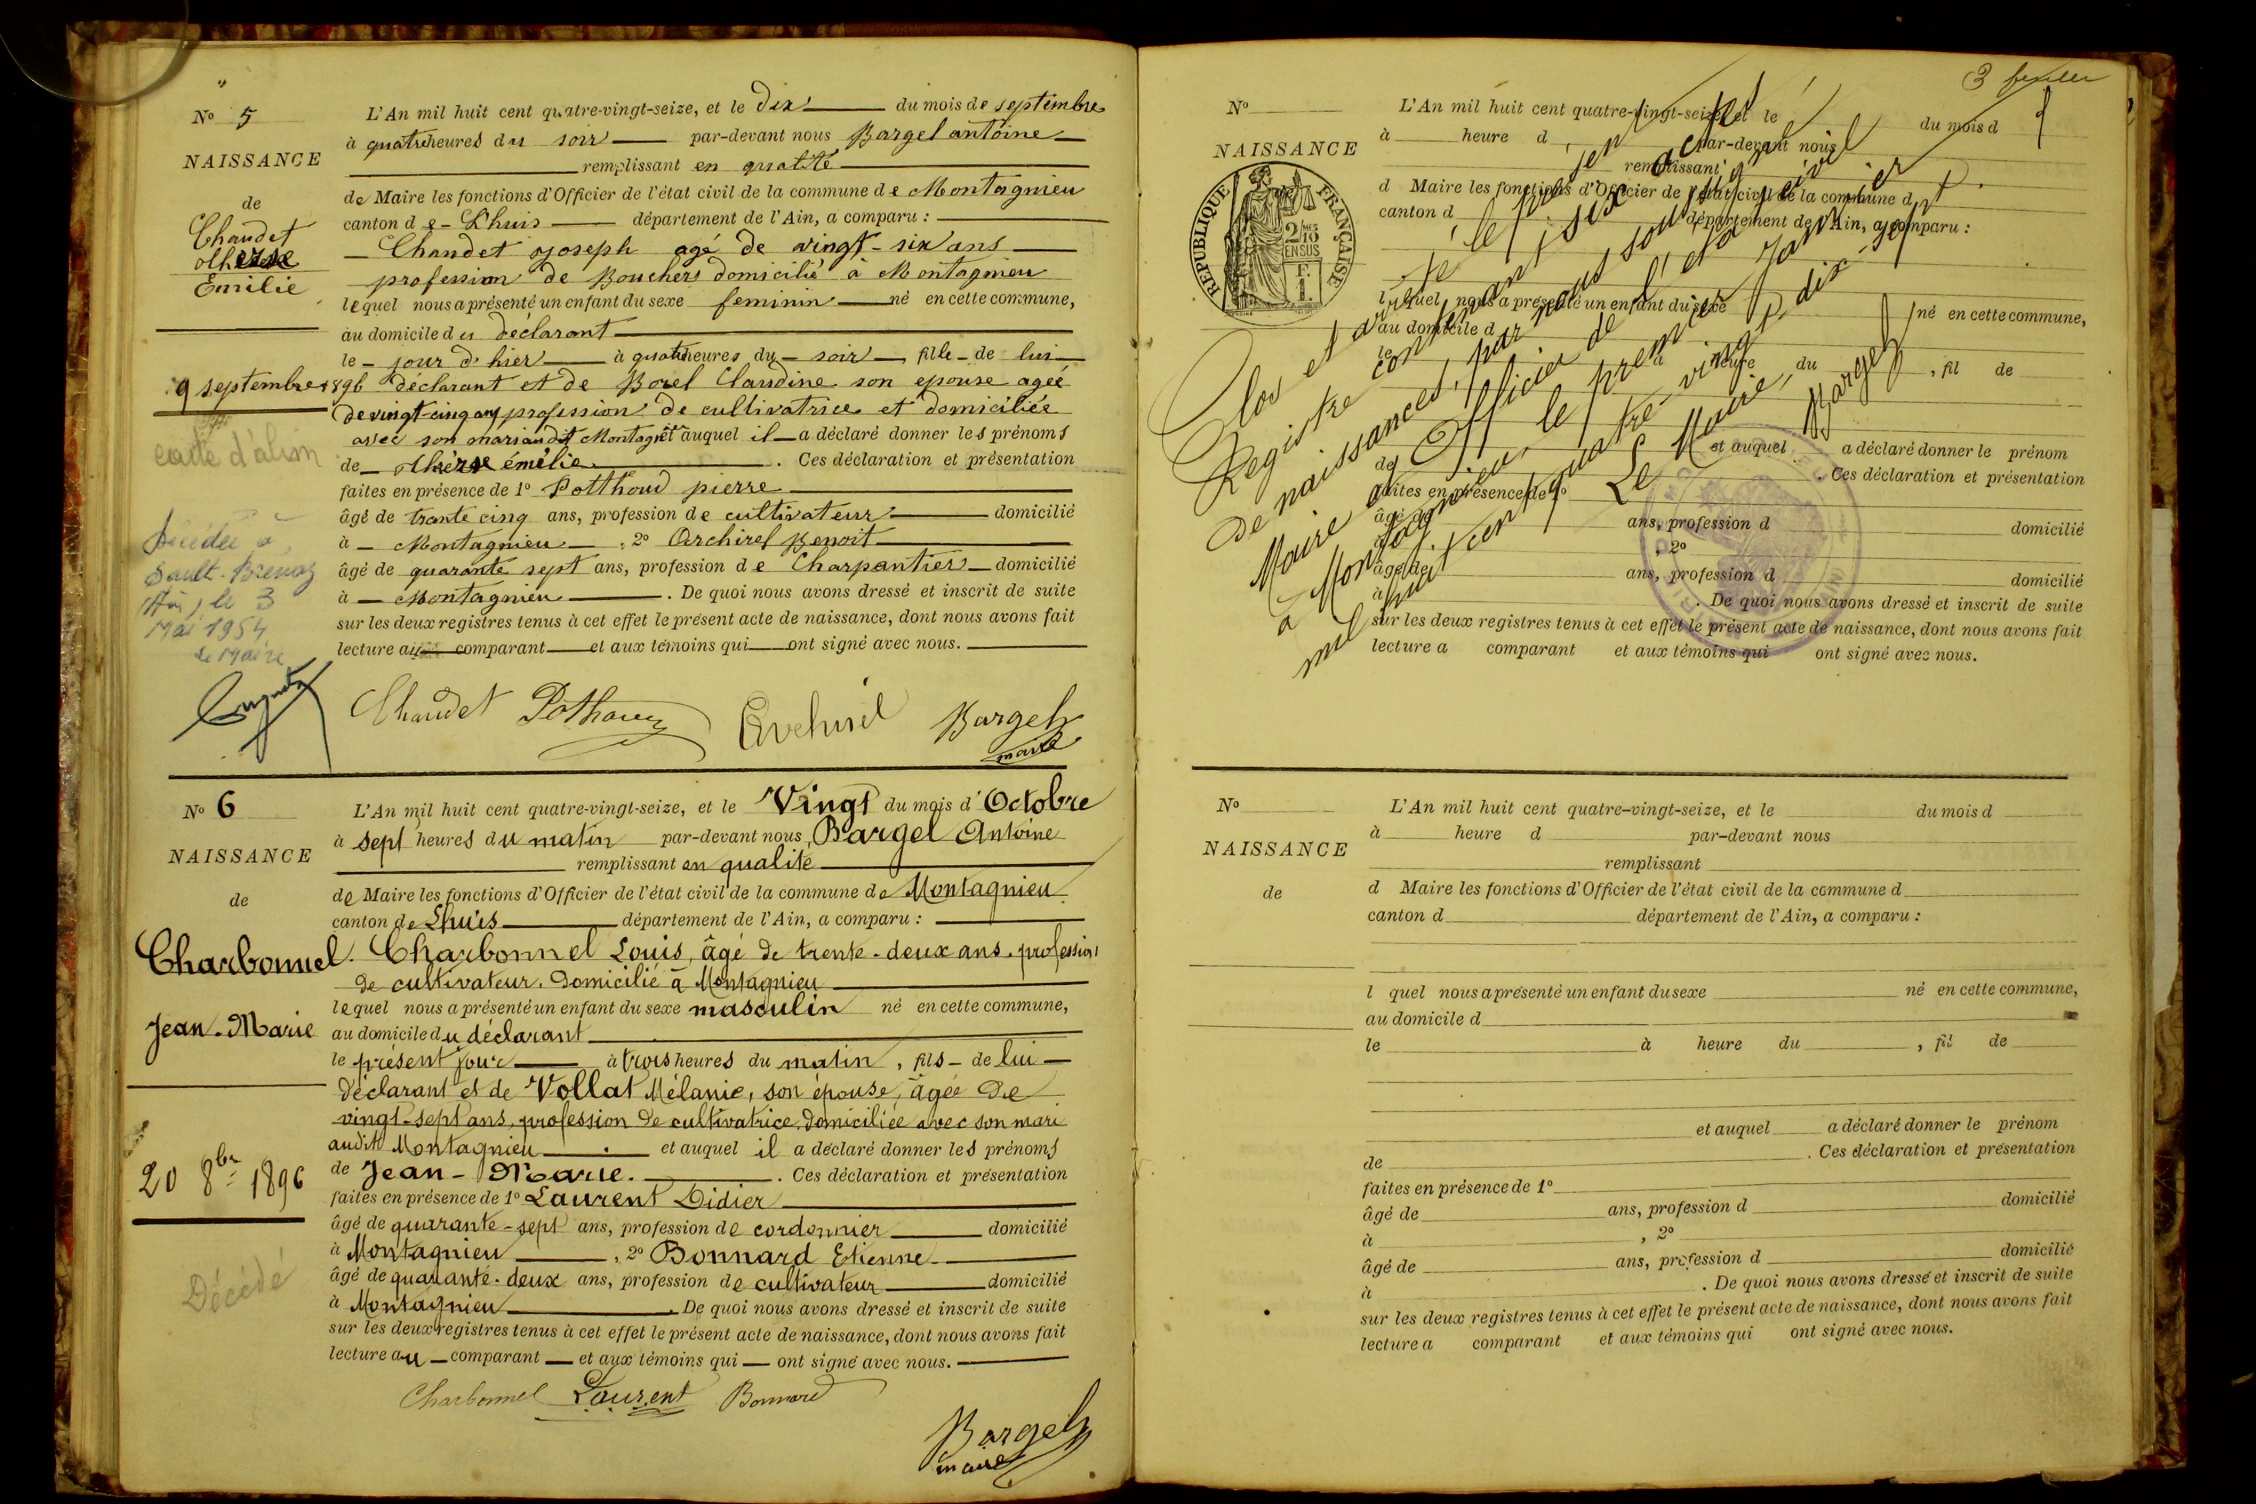 N° 5
NAISSANCE
de
Chaudet
Emilie
9 septembre 1896
carte d'alim
Décédée à
Sault-Brenaz
(Ain) le 3
Mai 1954
Le Maire
L'An mil huit cent quatre-vingt-seize, et le dix du mois de septembre
à quatre heures du soir par-devant nous Bargel antoine
remplissant en qualité
de Maire les fonctions d'Officier de l'état civil de la commune de Montagnieu
canton de Lhuis département de l'Ain, a comparu :
Chaudet Joseph agé de vingt-six ans
profession de Boucher domicilié à Montagnieu
lequel nous a présenté un enfant du sexe feminin né en cette commune,
au domicile du déclarant
le jour d'hier à quatre heures du soir, fille de lui
déclarant et de Borel Claudine son epouse agée
de vingt-cinq ans profession de cultivatrice et domiciliée
avec son mari audit Montagnieu et auquel il a déclaré donner les prénoms
de thérèse émélie. Ces déclaration et présentation
faites en présence de 1° Potthoud pierre
âgé de trante cinq ans, profession de cultivateur domicilié
à Montagnieu, 2° Archirel Benoit
âgé de quarante sept ans, profession de Charpantier domicilié
à Montagnieu. De quoi nous avons dressé et inscrit de suite
sur les deux registres tenus à cet effet le présent acte de naissance, dont nous avons fait
lecture au comparant et aux témoins qui ont signé avec nous.
Chaudet Bargel
maire
N° 6
NAISSANCE
de
Charbonnel
Jean-Marie
20 8bre 1896
Décédé
L'An mil huit cent quatre-vingt-seize, et le Vingt du mois d'Octobre
à sept heures du matin par-devant nous, Bargel Antoine
remplissant en qualité
de Maire les fonctions d'Officier de l'état civil de la commune de Montagnieu
canton de Lhuis département de l'Ain, a comparu :
Charbonnel Louis, âgé de trente-deux ans, profession
de cultivateur, domicilié à Montagnieu
lequel nous a présenté un enfant du sexe masculin né en cette commune,
au domicile du déclarant
le présent jour à trois heures du matin, fils de lui
déclarant et de Vollat Mélanie, son épouse, âgée de
vingt-sept ans, profession de cultivatrice, domiciliée avec son mari
audit Montagnieu et auquel il a déclaré donner les prénoms
de Jean-Marie. Ces déclaration et présentation
faites en présence de 1° Laurent Didier
âgé de quarante-sept ans, profession de cordonnier domicilié
à Montagnieu, 2° Bonnard Etienne
âgé de quarante-deux ans, profession de cultivateur domicilié
à Montagnieu. De quoi nous avons dressé et inscrit de suite
sur les deux registres tenus à cet effet le présent acte de naissance, dont nous avons fait
lecture au comparant et aux témoins qui ont signé avec nous.
Charbonnel Laurent Bonnard
Bargel
maire
N°
NAISSANCE
RÉPUBLIQUE FRANÇAISE
2/10 EN SUS
F. 1.
L'An mil huit cent quatre-vingt-seize, et le du mois d
à heure d par-devant nous
remplissant
d Maire les fonctions d'Officier de l'état civil de la commune d
canton d département de l'Ain, a comparu :
l quel nous a présenté un enfant du sexe né en cette commune,
au domicile d
le à heure du, fil de
et auquel a déclaré donner le prénom
de. Ces déclaration et présentation
faites en présence de 1°
âgé de ans, profession d domicilié
à, 2°
âgé de ans, profession d domicilié
à. De quoi nous avons dressé et inscrit de suite
sur les deux registres tenus à cet effet le présent acte de naissance, dont nous avons fait
lecture a comparant et aux témoins qui ont signé avec nous.
Clos et arrêté le présent
Registre contenant six actes
de naissances, par nous soussigné
Maire et Officier de l'état civil
à Montagnieu, le premier Janvier
mil huit cent quatre-vingt dix-sept.
Le Maire,
Bargel
N°
NAISSANCE
de
L'An mil huit cent quatre-vingt-seize, et le du mois d
à heure d par-devant nous
remplissant
d Maire les fonctions d'Officier de l'état civil de la commune d
canton d département de l'Ain, a comparu :
l quel nous a présenté un enfant du sexe né en cette commune,
au domicile d
le à heure du, fil de
et auquel a déclaré donner le prénom
de. Ces déclaration et présentation
faites en présence de 1°
âgé de ans, profession d domicilié
à, 2°
âgé de ans, profession d domicilié
à. De quoi nous avons dressé et inscrit de suite
sur les deux registres tenus à cet effet le présent acte de naissance, dont nous avons fait
lecture a comparant et aux témoins qui ont signé avec nous.